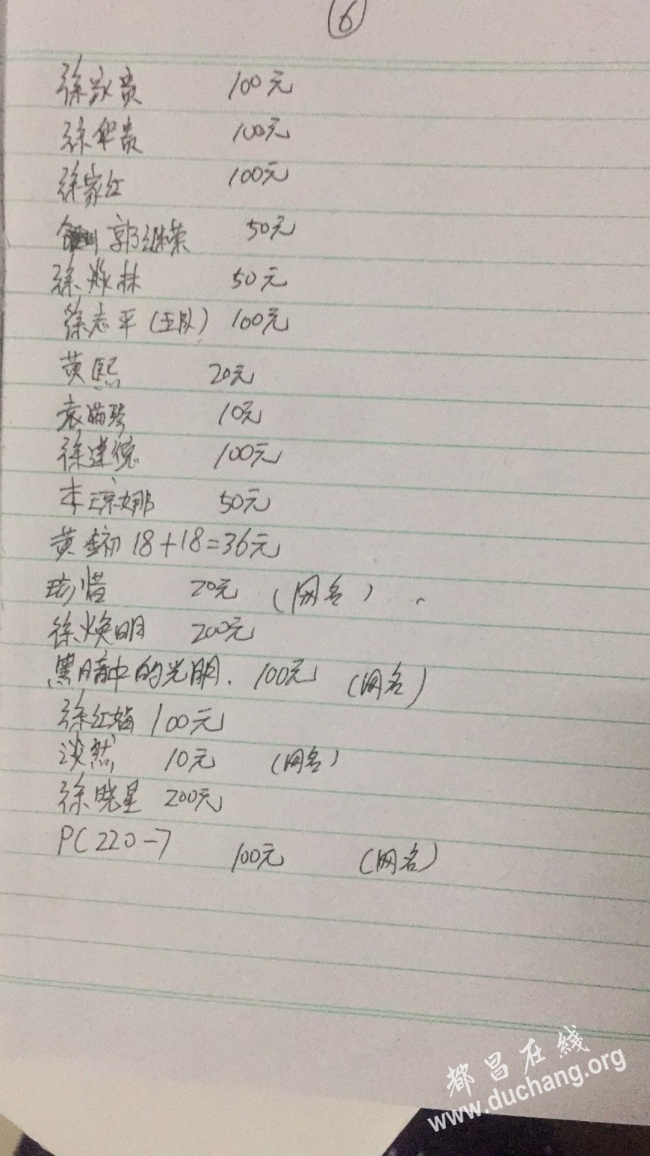 ⑥
徐家贵 100元
徐华贵 100元
徐家红 100元
郭继荣 50元
徐林 50元
徐志平(五队) 100元
黄熙 20元
袁 10元
徐建 100元
李琼娜 50元
黄初 18+18=36元
珍惜 20元 (网名)
徐焕明 200元
黑暗中的光明. 100元 (网名)
徐红娟 100元
淡然 10元 (网名)
徐晓星 200元
PC220-7 100元 (网名)
都昌在线
www.duchang.org